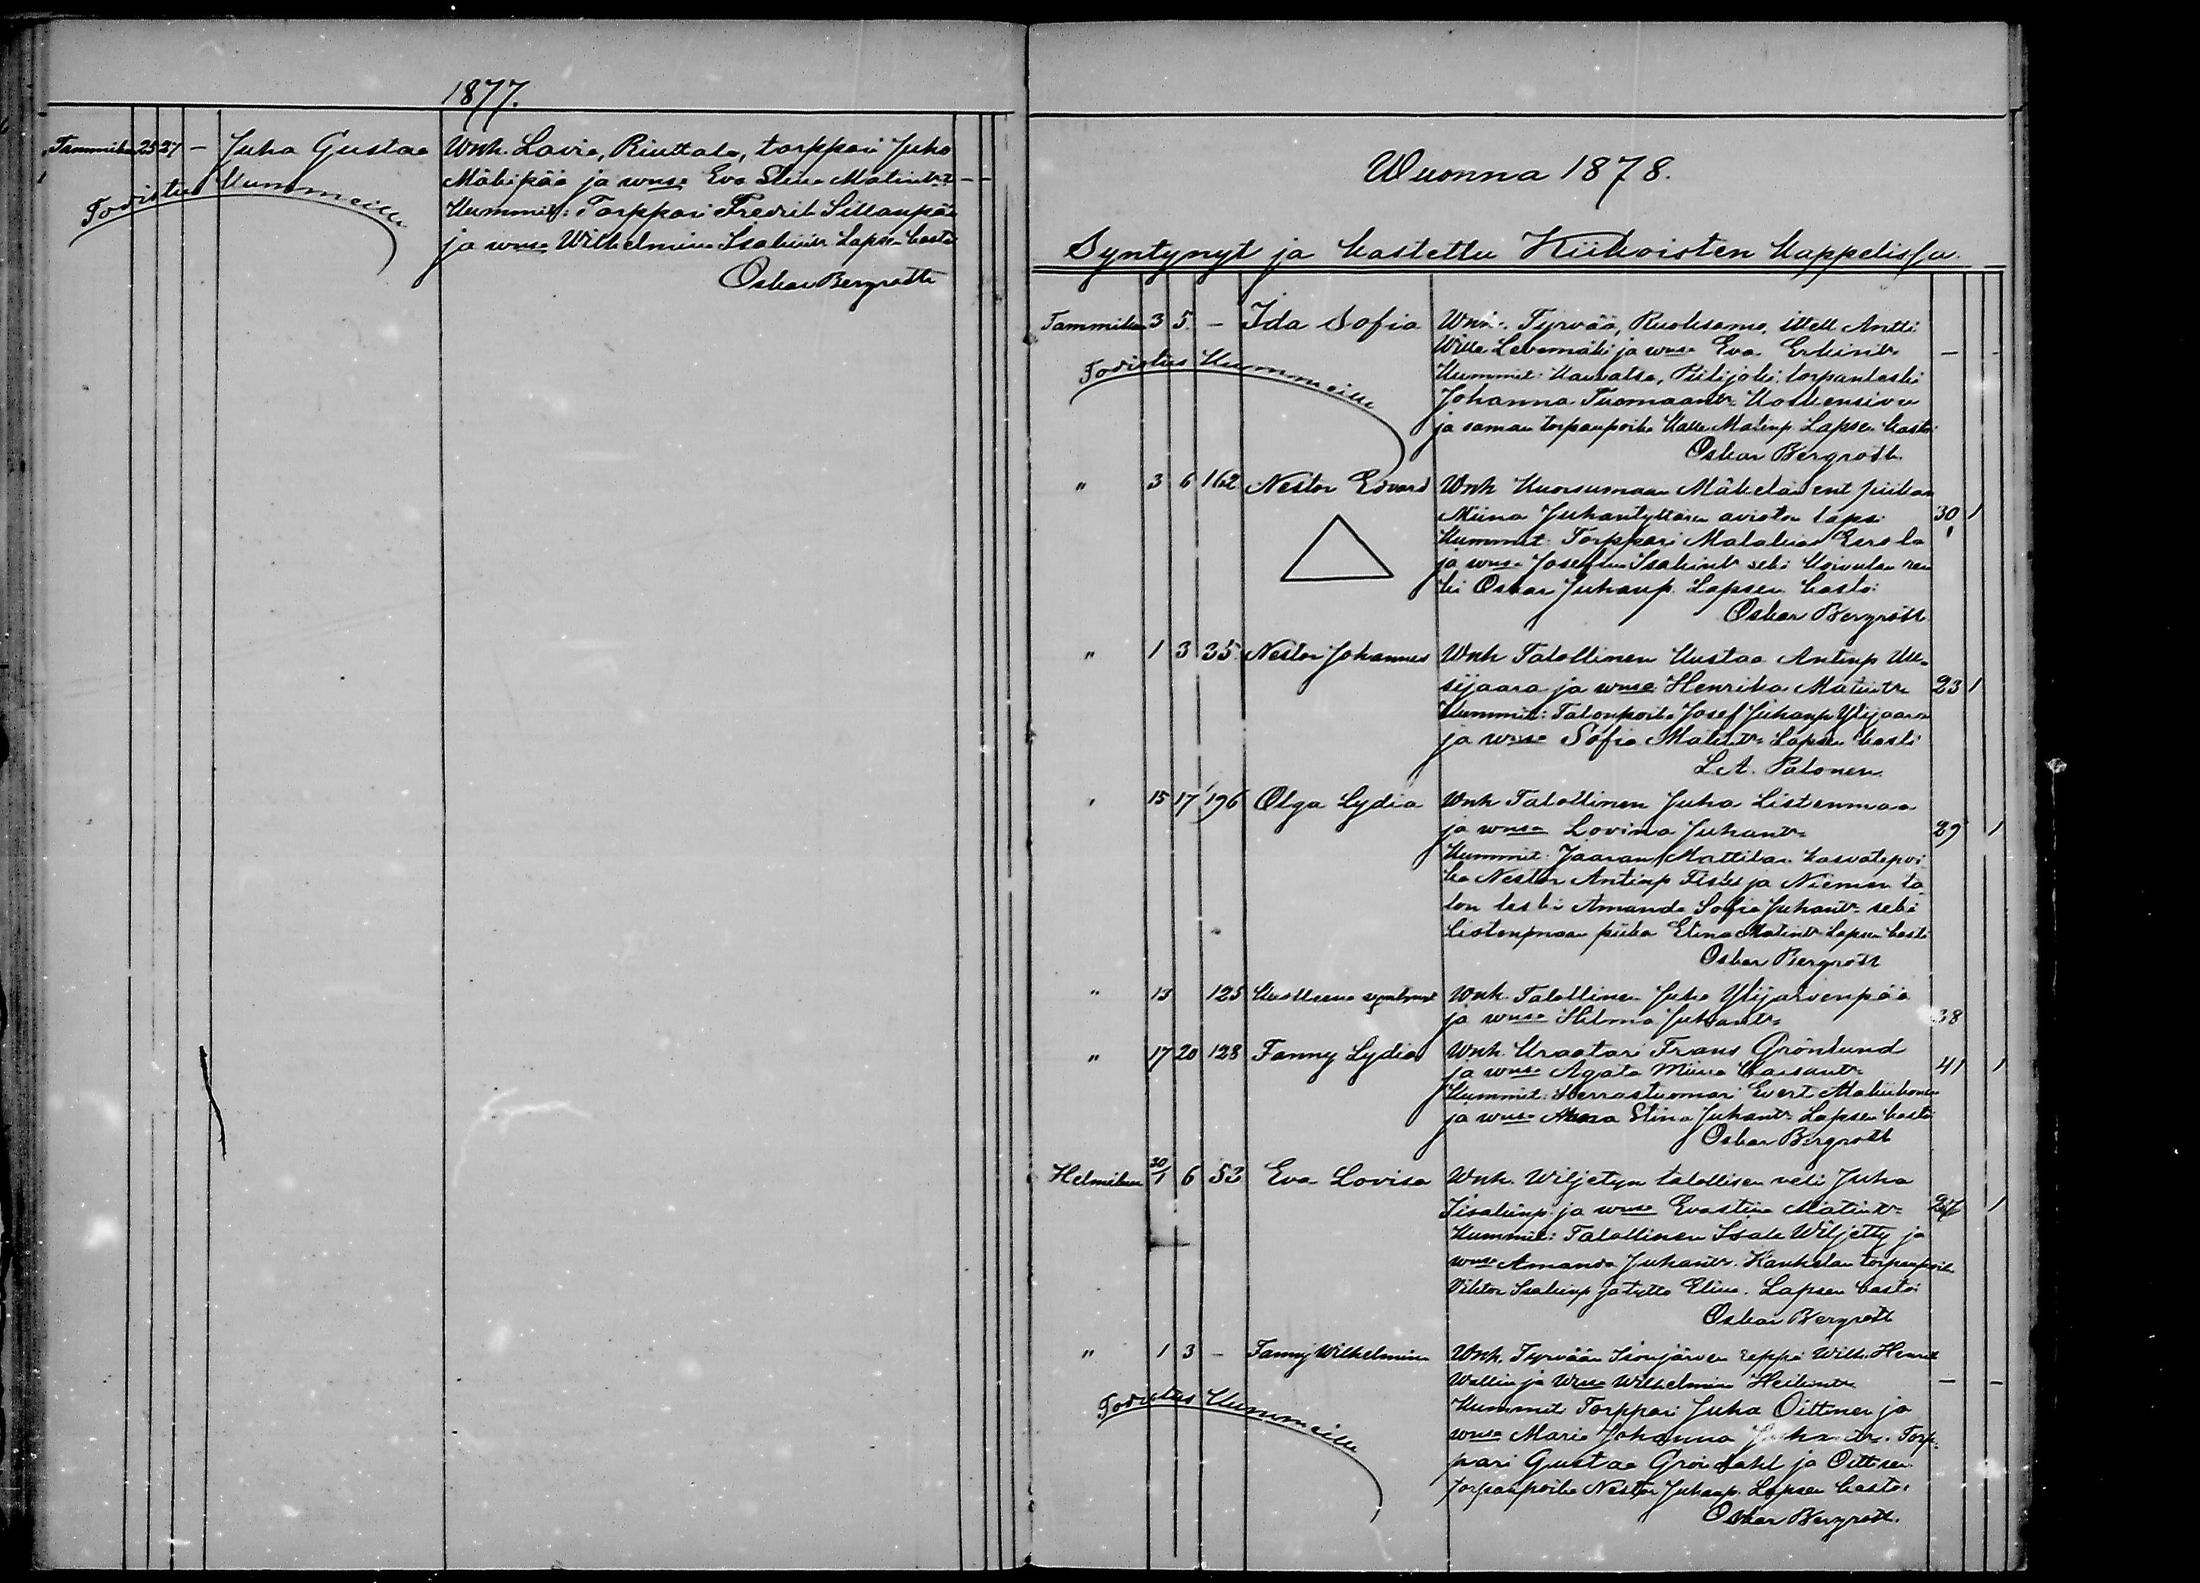 1877.
Tammik. 25 27 — Juha Gustaa Wnh. Lavia, Riuttala, torppari Juho
Mäkipää ja wmsa Eva Stina Matintr. — —
Todistus Kummeille
Kummit: Torppari Fredrik Sillanpää
ja wmsa Wilhelmina Isakintr Lapsen kasti
Oskar Bergroth
Wuonna 1878.
Syntynyt ja kastettu Kiikoisten kappelissa.
Tammikuu 3 5 — Ida Sofia Wnh. Tyrvää, Ruoksamo, ittell Antti
Wille Levomäki ja wmsa Eva Erkintr — —
Todistus Kummeille
Kummit: Kauvatsa, Piilijoki, torpanleski
Johanna Tuomaantr Koskensivu
ja saman torpanpoika Kalle Matinp. Lapsen kasti
Oskar Bergroth
" 3 6 162 Nestor Edvard Wnh Kuorsumaan Mäkelän ent piikan
Miina Juhantyttären aviotoin lapsi 30 1
Kummit: Torppari Malakias Eerola
ja wmsa Josefina Isakintr sekä Koivulan ren
ki Oskar Juhanp. Lapsen kasti
Oskar Bergroth
" 1 3 35 Nestor Johannes Wnh Talollinen Kustaa Antinp Uu-
sijaara ja wmsa Henrika Matintr 23 1
Kummit: Talonpoika Josef Juhanp Ylijaara
ja wmsa Sofia Matintr Lapsen kasti
L.A. Palonen
" 15 17 196 Olga Lydia Wnh Talollinen Juha Listenmaa
ja wmsa Lovina Juhantr 29 1
Kummit: Jaaran Mattilan kasvatepoi
ka Nestor Antinp ja Niemen ta
lon leski Amanda Sofia Juhantr sekä
Listenmaan piika Elina Matintr Lapsen kasti
Oskar Bergroth
" 13 125 Kuolleena syntynyt Wnh. Talollinen Juha Ylijärvenpää
ja wmsa Hilma Juhantr 38
" 17 20 128 Fanny Lydia Wnh. Kraatari Frans Grönlund
ja wmsa Agata Miina 41 1
Kummit: Herrastuomari Evert
ja wmsa Anna Stina Juhantr Lapsen kasti
Oskar Bergroth
Helmikuu 30/1 6 53 Eva Lovisa Wnh. Wiljetyn talollisen veli Juha
Iisakinp. ja wmsa Evastina Matintr 27 1
Kummit: Talollinen Isak Wiljetty ja
wmsa Amanda Juhantr. Kankelan torpanpoika
Viktor Isakinp ja tyttö Elina. Lapsen kasti
Oskar Bergroth
" 1 3 — Fanny Wilhelmina Wnh. Tyrvään Isonjärven seppä Wilh. Henrik
Wallin ja wmsa Wilhelmina Heikintr — —
Todistus Kummeille
Kummit Torppari Juha Oittinen ja
wmsa Maria Johanna Juhantr. Torp-
pari Gustaa Gröndahl ja Oittisen
torpanpoika Nestor Juhanp. Lapsen kasti
Oskar Bergroth.